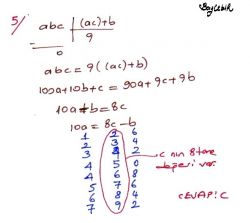 BayÇınar
5/ abc | (ac)+b
9
0
abc = 9 ((ac)+b)
100a+10b+c = 90a+9c+9b
10a+b = 8c
10a = 8c-b
1 2 6
2 3 4
3 4 2
4 5 0
4 5 8
5 6 6
6 7 4
7 9 2
c nin 8 tane
değeri var.
CEVAP: C